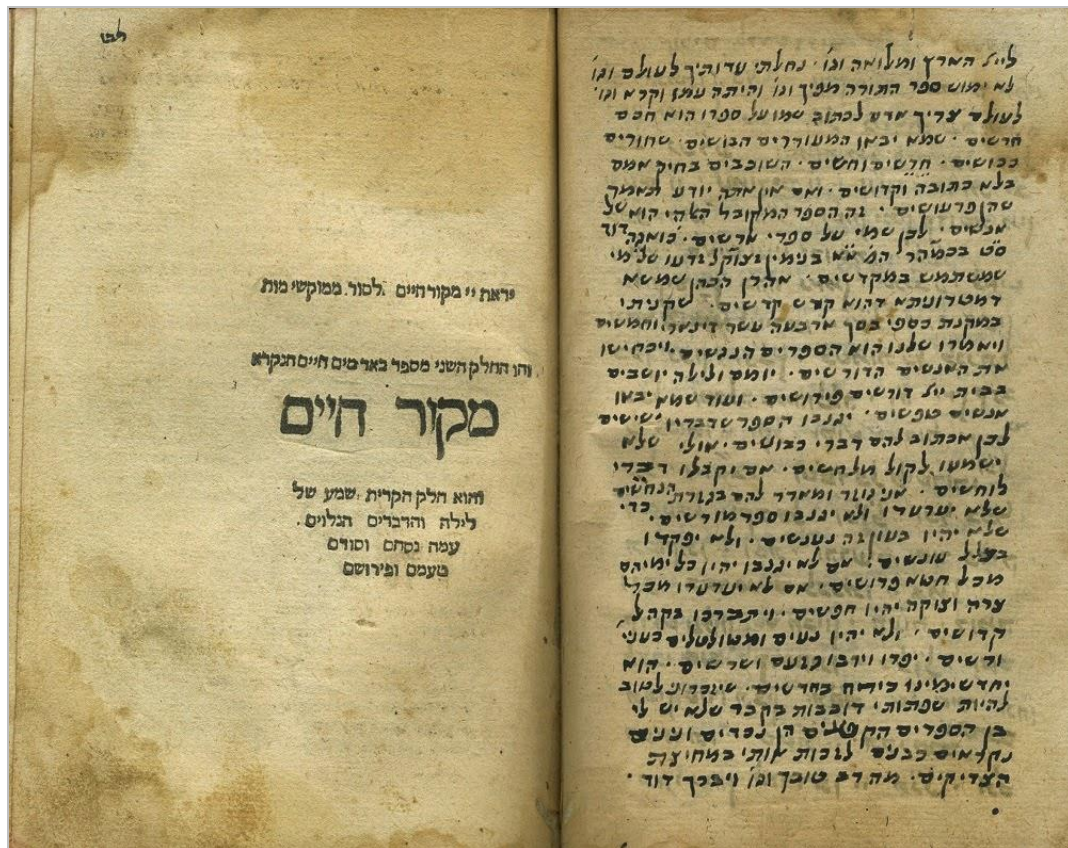 לייל הארץ ומלואה וגו' · נחלתי עדותיך לעולם וגו'
לא ימוש ספר התורה מפיך וגו' והיתה עמו וקרא וגו'
לעולם צריך אדם לכתוב שמו על ספרו הוא חכם
חרשים · שמא יבאו המעוררים הבושים · שחורים
ככושים · חרשים וחשים · השוכבים בחיק אמם
בלא כתובה וקדושים · ואם אין אתה יודע תאמר
שהן פרעושים · זה הספר המקובל האלהי הוא של
אנשים · לכן שמי על ספרי ארשים · כואנה דוד
ס"ט בכמהר בנימין
שמשתמש במקדשים · אהרן הכהן שמשא
דמטרוניתא דהוא קדש קדשים · שקניתי
במקנת כספי בסך ארבעה עשר דינאר וחמשים
ויאמרו שלנו הוא הספרים הנגשים · ויכחישו
את האנשים הדורשים · יומם ולילה יושבים
בבית ייל דורשים פירושים · ועוד שמא יבאו
אנשים טפשים · יגנבו הספר שדבריו ישישים
לכן אכתוב להם דברי כבושים · אולי שלא
ישמעו לקול מלחשים · אם יקבלו דברי
לוחשים · אני גוזר ומארר להם בגזרת הנחשים
שלא יערערו ולא יגנבו ספר מורשים · כדי
שלא יהיו בעון זה נענשים · ולא יפקדו
בגלל עונשים · אם לא יגנבו יהיו כל ימיהם
מכל חטא פרושים · אם לא יערערו מכל
צרה וצוקה יהיו חפשים · ויתברכו בקהל
קדושים · ולא יהיו נעים ומטולטלים כעני
ורשים · יפרו וירבו כגזעם ושרשים · הוא
יחדש ימינו כירח בחדשים · שיזכרוני לטוב
להיות שפתותי דובבות בקבר שלא יש לי
בן הספרים הן נכדים
נקראים כבנים לזכות אותי במחיצת
הצדיקים · מה רב טובך וגו' ויברך דוד ·
לבו
יראת יי מקור חיים . לסור. ממוקשי מות
וזהו החלק השני מספר באר מים חיים הנקרא
מקור חיים
והוא חלק הקרית שמע של
לילה והדברים הנלוים.
עמה נסחם וסודם
טעמם ופירושם